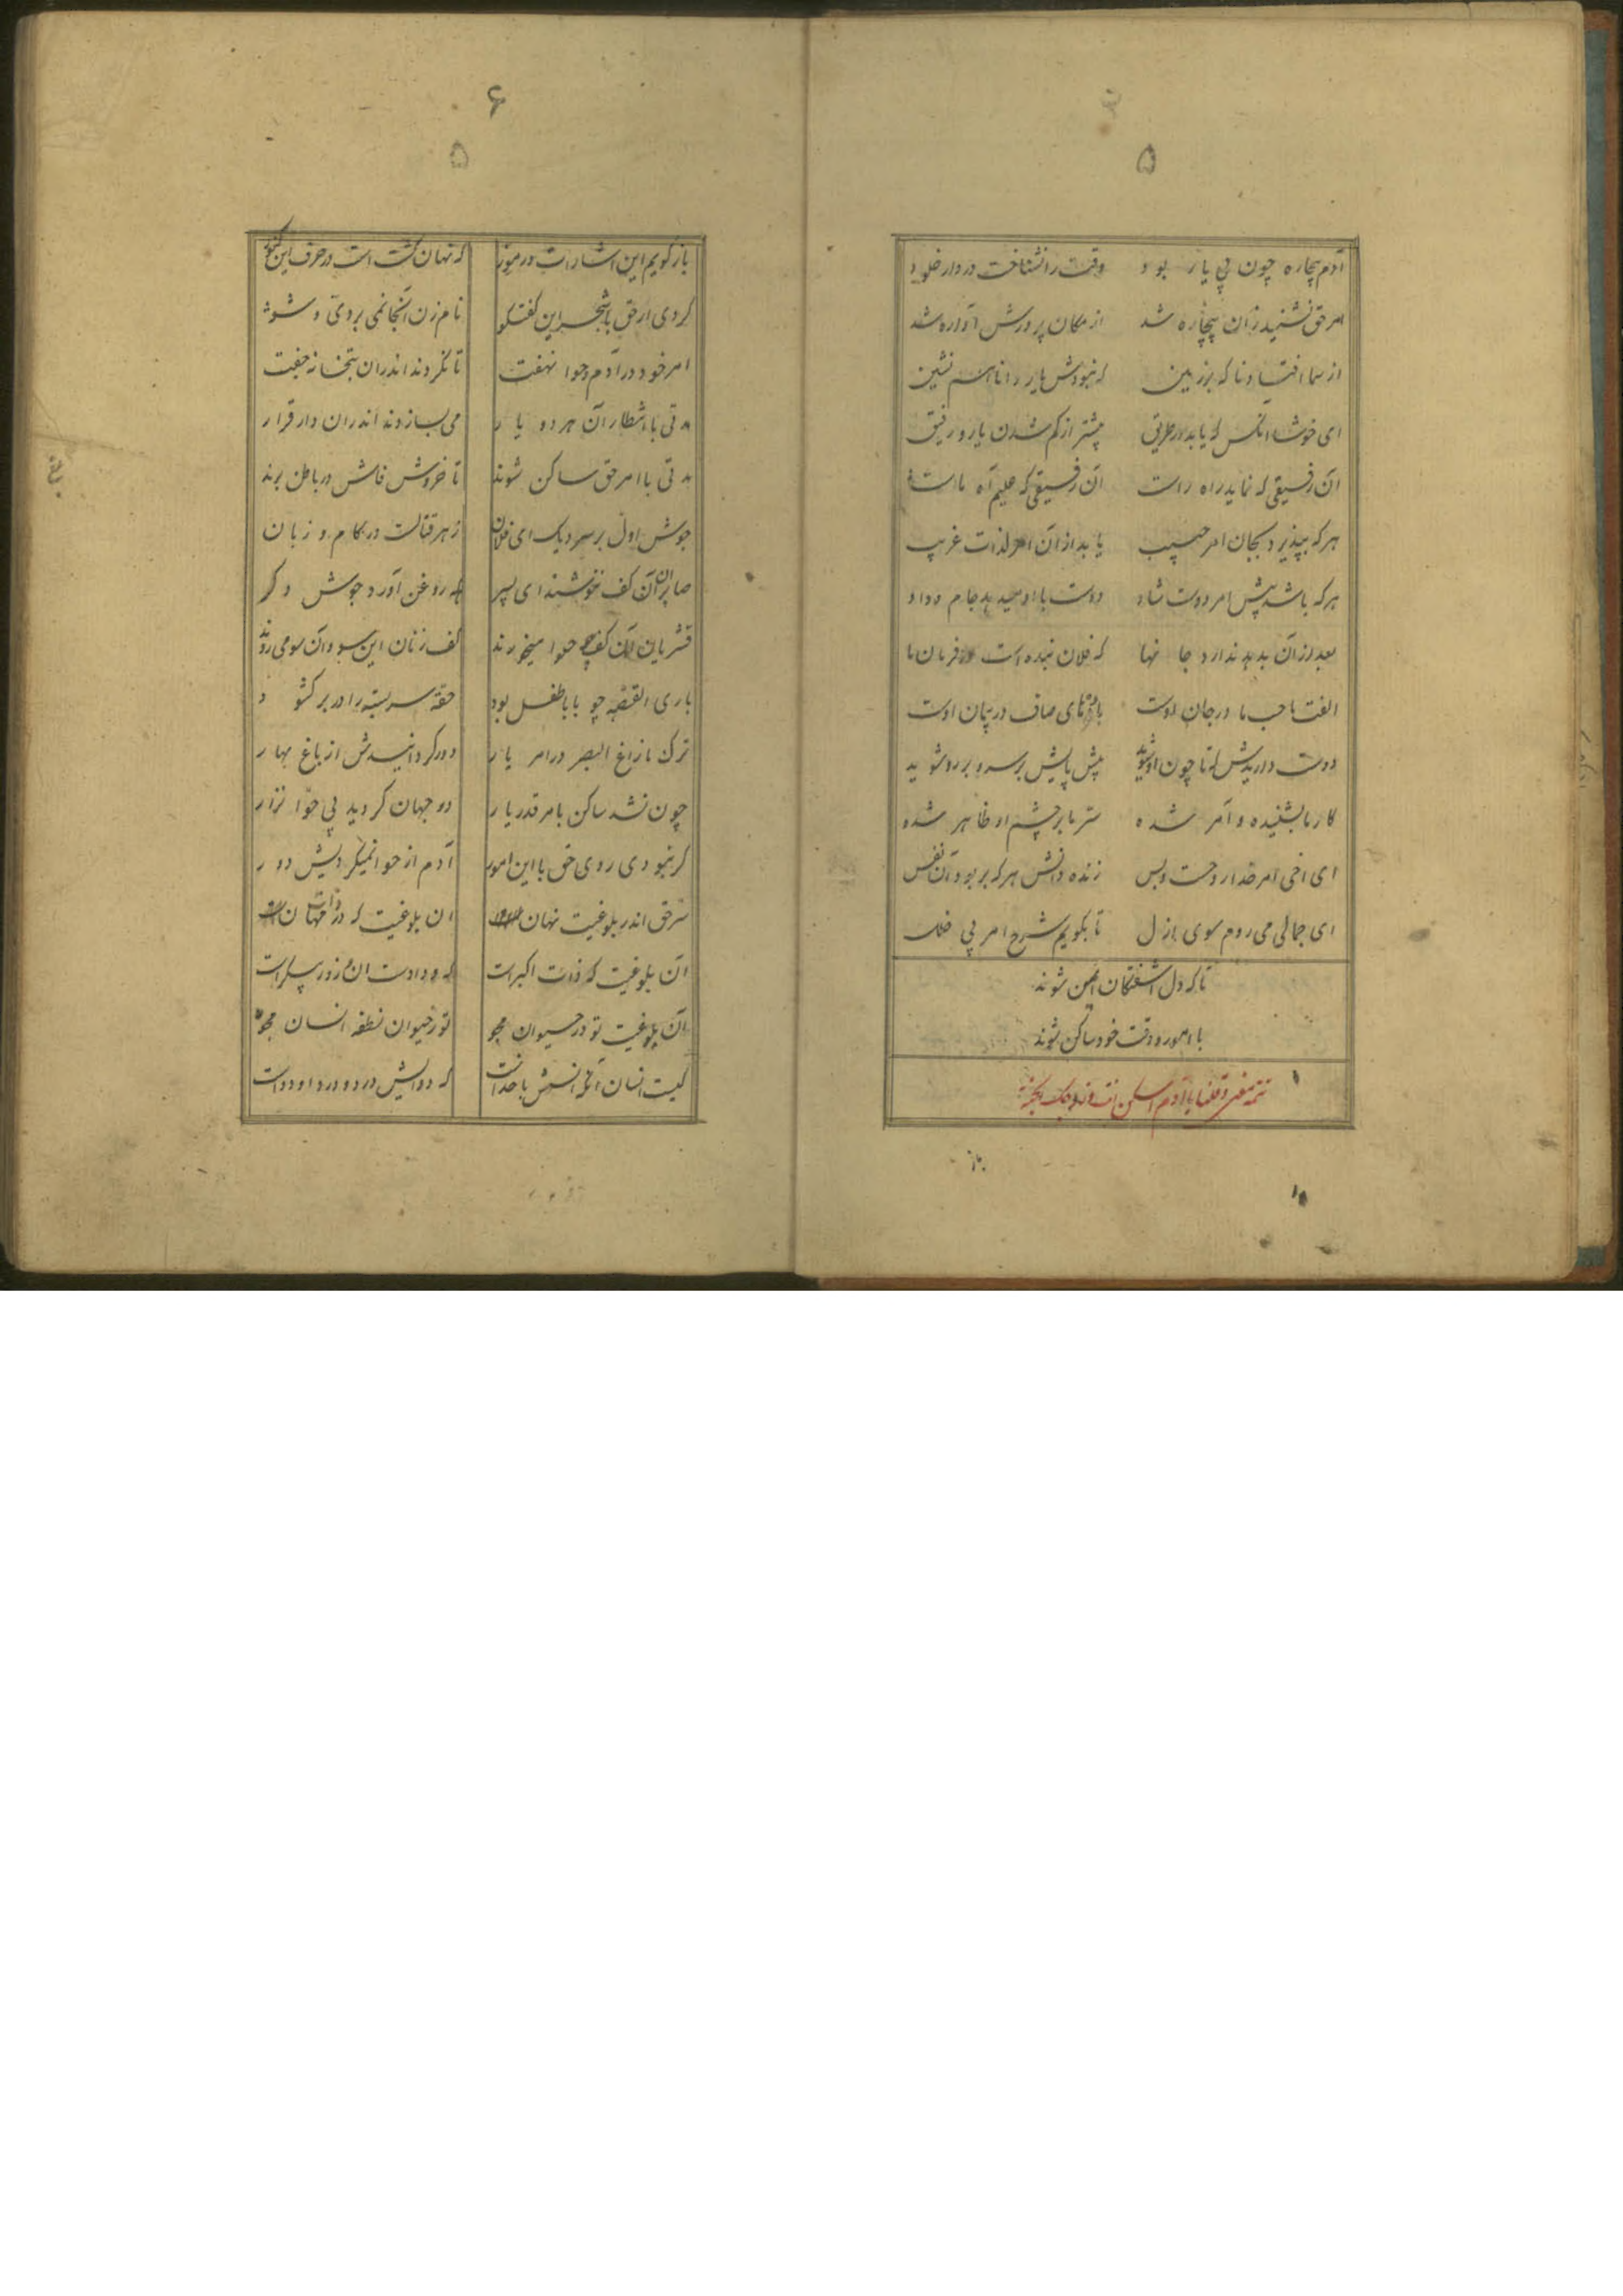 ۵
آدم بیچاره چون بی یار بود وقت را نشناخت در دار خلود
امر حق نشنید زان بیچاره شد از مکان پرورش آواره شد
از سما افتاد ناگه بر زمین که نبودش یار دانا همنشین
ای خوشا آنکس که یابد در طریق پیشتر از گم شدن یار و رفیق
آن رفیقی که نماید راه راست آن رفیقی که علیم آه ماست
هر که بپذیرد بجان امر حبیب یابد از آن امر لذات غریب
هر که باشد پیش امر دوست شاد دوست با او میدهد جام وداد
بعد از آن بدهد ندا در جا نها که فلان بنده است در فرمان ما
الفت ما حب ما در جان اوست باده های صاف در پیمان اوست
دوست داریدش که تا چون او شوید پیش پایش بر سر و بر رو شوید
کار ما بشنیده و آمر شده ستر ما بر چشم او ظاهر شده
ای اخی امر خدا روحست و بس زنده دانش هر که بربود آن نفس
ای جمالی می روم سوی ازل تا بگویم شرح امر بی خلل
تا که دل آشفتگان ایمن شوند
با امور وقت خود ساکن شوند
تتمه معنی و قلنا یا آدم اسکن انت و زوجک الجنة
باز
۶
۵
باز گویم این اشارات در رموز که نهان گشت است در حرف این کنوز
کردی ار حق با شجر این گفتگو نام زن آنجا نمی بردی و شو
امر خود در آدم و حوا نهفت تا نگردند اندران بتخانه جفت
مدتی با انتظار آن هر دو یار می بسازند اندران دار قرار
مدتی با امر حق ساکن شوند تا خروش فاش در باطن برند
جوش اول بر سر دیک ای فلان زهر قتالست در کام و زبان
صابران آن کف ننوشند ای پسر که روغن آورد جوش دگر
قشریان آن کف چو حلوا میخورند کف زنان این سو و آن سو می روند
باری القصه چو بابا طفل بود حقه سر بسته را در بر کشود
ترک ما زاغ البصر در امر یار دور گردانیدش از باغ بهار
چون نشد ساکن بامر قدر یار در جهان گردید بی حوا نزار
گر نبودی روی حق با این امور آدم از حوا نمیگردیش دور
سر حق اندر بلوغیت نهان است ان بلوغیت که در ذات مهان است
آن بلوغیت که ذات اکبر است
آن بلوغیت تو در حیوان مجو تو ز حیوان نطفه انسان مجو
کیست انسان آنکه انسش با خداست که دوایش درد و درد او دواست